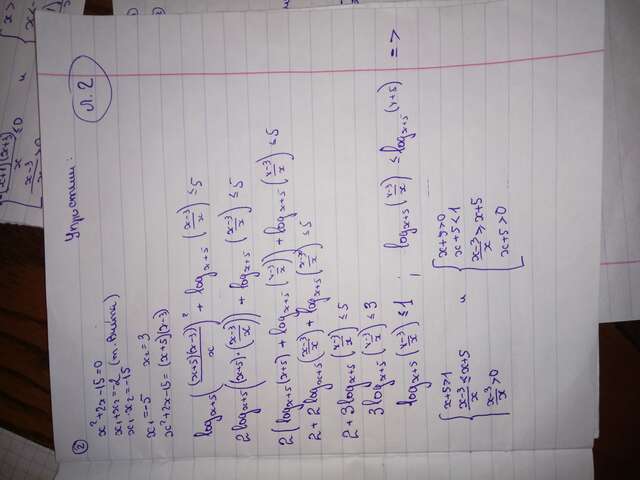 (x+1)(x+3)
x ≤0
x-3
x >0
и
x>
②
Упростим:
л.2
x²+2x-15=0
x₁+x₂=-2 (т. Виета)
x₁·x₂=-15
x₁=-5 x₂=3
x²+2x-15=(x+5)(x-3)
log_{x+5}((x+5)(x-3)/x)² + log_{x+5}((x-3)/x) ≤5
2log_{x+5}((x+5)·((x-3)/x)) + log_{x+5}((x-3)/x) ≤5
2(log_{x+5}(x+5) + log_{x+5}((x-3)/x)) + log_{x+5}((x-3)/x) ≤5
2+2log_{x+5}((x-3)/x) + log_{x+5}((x-3)/x) ≤5
2+3log_{x+5}((x-3)/x) ≤5
3log_{x+5}((x-3)/x) ≤3
log_{x+5}((x-3)/x) ≤1 ; log_{x+5}((x-3)/x) ≤ log_{x+5}(x+5) =>
{ x+5>1
(x-3)/x ≤x+5
(x-3)/x >0
и
{ x+5>0
x+5<1
(x-3)/x ≥x+5
x+5>0